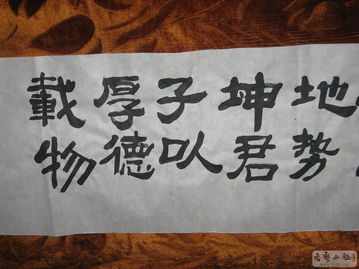 地势
坤君
子以
厚德
載物